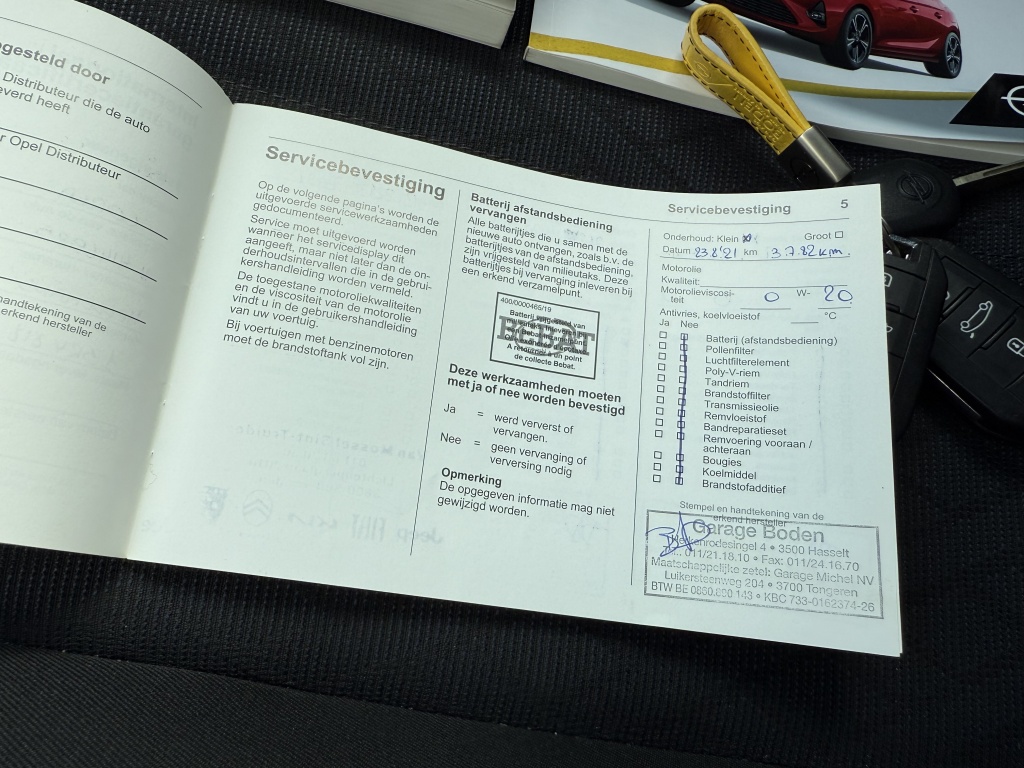 gesteld door
Distributeur die de auto
everd heeft
r Opel Distributeur
handtekening van de
erkend hersteller
Servicebevestiging
Op de volgende pagina's worden de
uitgevoerde servicewerkzaamheden
gedocumenteerd.
Service moet uitgevoerd worden
wanneer het servicedisplay dit
aangeeft, maar niet later dan de on-
derhoudsintervallen die in de gebrui-
kershandleiding worden vermeld.
De toegestane motoroliekwaliteiten
en de viscositeit van de motorolie
vindt u in de gebruikershandleiding
van uw voertuig.
Bij voertuigen met benzinemotoren
moet de brandstoftank vol zijn.
Batterij afstandsbediening
vervangen
Alle batterijtjes die u samen met de
nieuwe auto ontvangen, zoals b.v. de
batterijtjes van de afstandsbediening,
zijn vrijgesteld van milieutaks. Deze
batterijtjes bij vervanging inleveren bij
een erkend verzamelpunt.
400/0000465/19
BEBAT
A retourner à un point
de collecte Bebat.
Deze werkzaamheden moeten
met ja of nee worden bevestigd
Ja = werd ververst of
vervangen.
Nee = geen vervanging of
verversing nodig
Opmerking
De opgegeven informatie mag niet
gewijzigd worden.
Servicebevestiging 5
Onderhoud: Klein Groot
Datum 23.8'21 km 3.782 km.
Motorolie
Kwaliteit:
Motorolieviscosi-
teit 0 W- 20
Antivries, koelvloeistof °C
Ja Nee
Batterij (afstandsbediening)
Pollenfilter
Luchtfilterelement
Poly-V-riem
Tandriem
Brandstoffilter
Transmissieolie
Remvloeistof
Bandreparatieset
Remvoering vooraan /
achteraan
Bougies
Koelmiddel
Brandstofadditief
Stempel en handtekening van de
erkend hersteller
Garage Boden
4 • 3500 Hasselt
011/21.18.10 • Fax: 011/24.16.70
Maatschappelijke zetel: Garage Michel NV
Luikersteenweg 204 • 3700 Tongeren
BTW BE 0850.800.143 • KBC 733-0162374-26